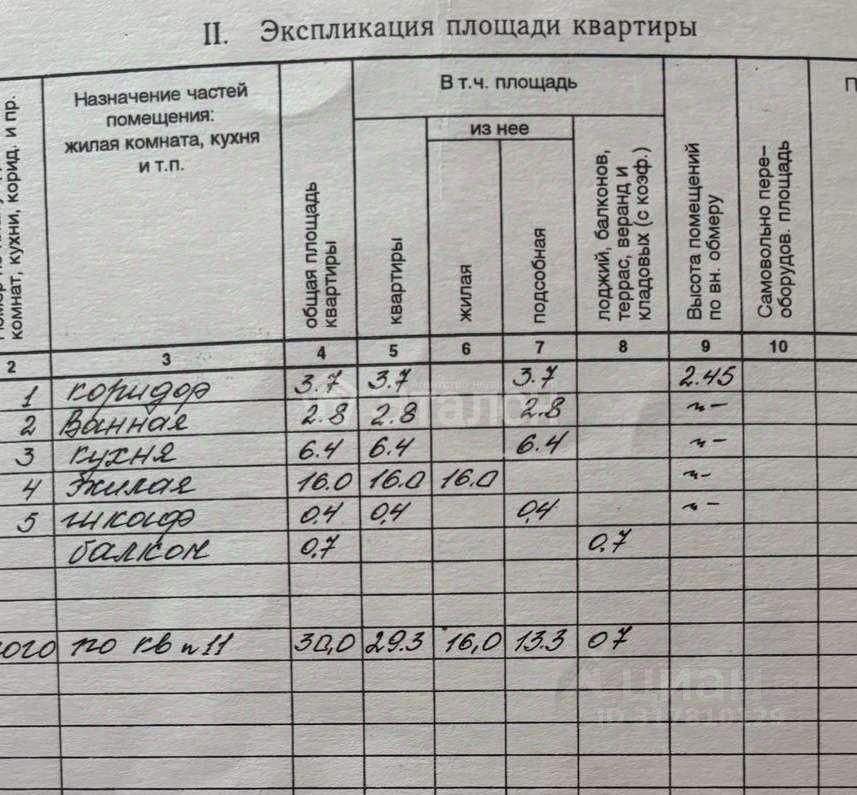 II. Экспликация площади квартиры
комнат, кухни, корид. и пр.
Назначение частей
помещения:
жилая комната, кухня
и т.п.
общая площадь
квартиры
В т.ч. площадь
квартиры
из нее
жилая
подсобная
лоджий, балконов,
террас, веранд и
кладовых (с коэф.)
Высота помещений
по вн. обмеру
Самовольно пере-
оборудов. площадь
2 3 4 5 6 7 8 9 10
1 коридор 3.7 3.7 3.7 2.45
2 Ванная 2.8 2.8 2.8 "–
3 кухня 6.4 6.4 6.4 "–
4 Жилая 16.0 16.0 16.0 "–
5 шкаф 0,4 0,4 0,4 "–
балкон 0,7 0.7
ого по кв п 11 30,0 29.3 16,0 13.3 07
Эталон
циан